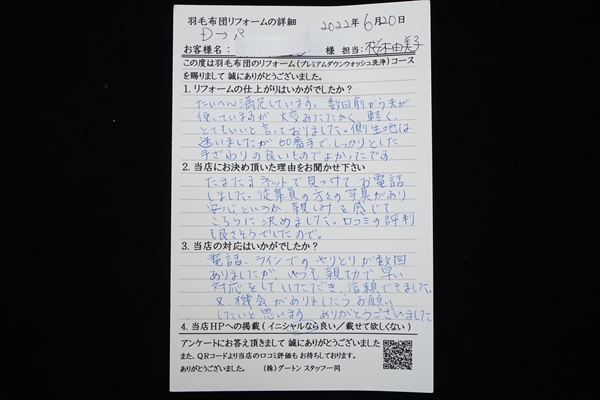 羽毛布団リフォームの詳細
D→P
2022年6月20日
お客様名： 様 担当：桜木由美子
この度は羽毛布団のリフォーム(プレミアムダウンウォッシュ洗浄)コース
を賜りまして 誠にありがとうございました。
1. リフォームの仕上がりはいかがでしたか？
たいへん満足しています。数日前から夫が
使っていますが 大変あたたかく、軽く、
とてもいいと言っておりました。側生地は
迷いましたが 60番手で、しっかりとした
手ざわりの良いものでよかったです
2. 当店にお決め頂いた理由をお聞かせ下さい
たまたまネットで見つけて お電話
しました。従業員の方々の写真があり
安心というか 親しみを感じて
こちらに決めました。口コミの評判
も良さそうでしたので。
3. 当店の対応はいかがでしたか？
電話、ラインでのやりとりが数回
ありましたが、いつも親切で早い
対応をしていただき、信頼できました。
又、機会がありましたらお願い
したいと思います ありがとうございました。
4. 当店HPへの掲載 (イニシャルなら良い／載せて欲しくない)
アンケートにお答え頂きまして 誠にありがとうございました
また、QRコードより当店の口コミ評価も お待ちしております。
ありがとうございました。 (株)ダートン スタッフ一同